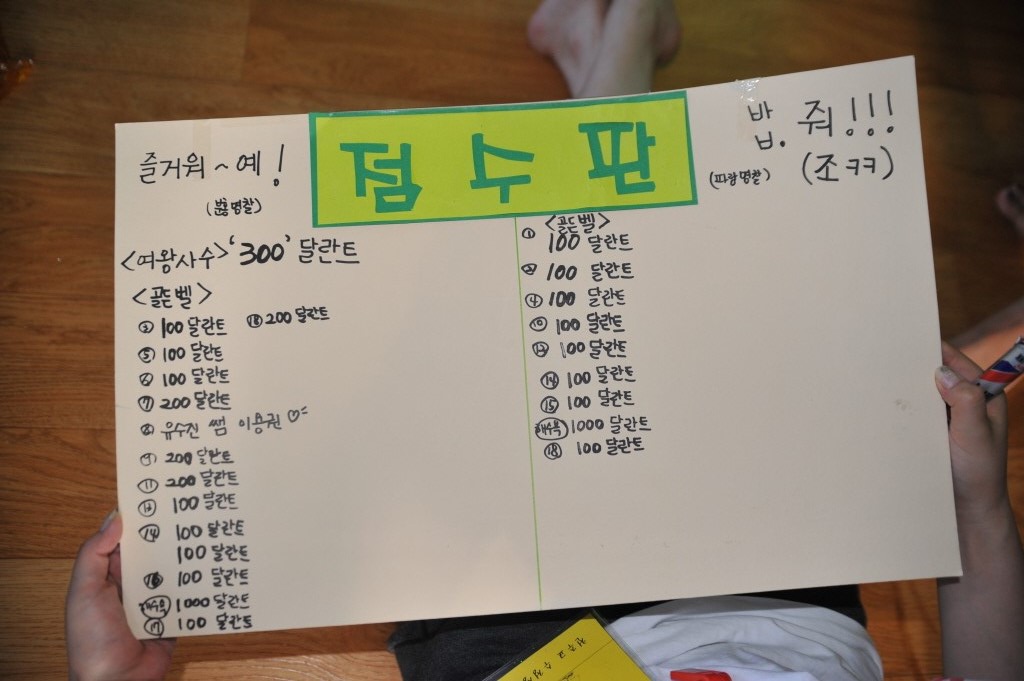 점수판
즐거워~예!
(분홍명찰)
<여왕사수> '300' 달란트
<골든벨>
② 100 달란트 ⑱ 200 달란트
⑤ 100 달란트
⑥ 100 달란트
⑦ 200 달란트
⑧ 유수진 쌤 이용권♡
⑨ 200 달란트
⑪ 200 달란트
⑬ 100 달란트
⑭ 100 달란트
100 달란트
⑯ 100 달란트
1000 달란트
⑰ 100 달란트
밥. 줘!!!
(파랑명찰) (조ㅋㅋ)
<골든벨>
① 100 달란트
100 달란트
④ 100 달란트
⑩ 100 달란트
⑫ 100 달란트
⑭ 100 달란트
⑮ 100 달란트
1000 달란트
⑱ 100 달란트